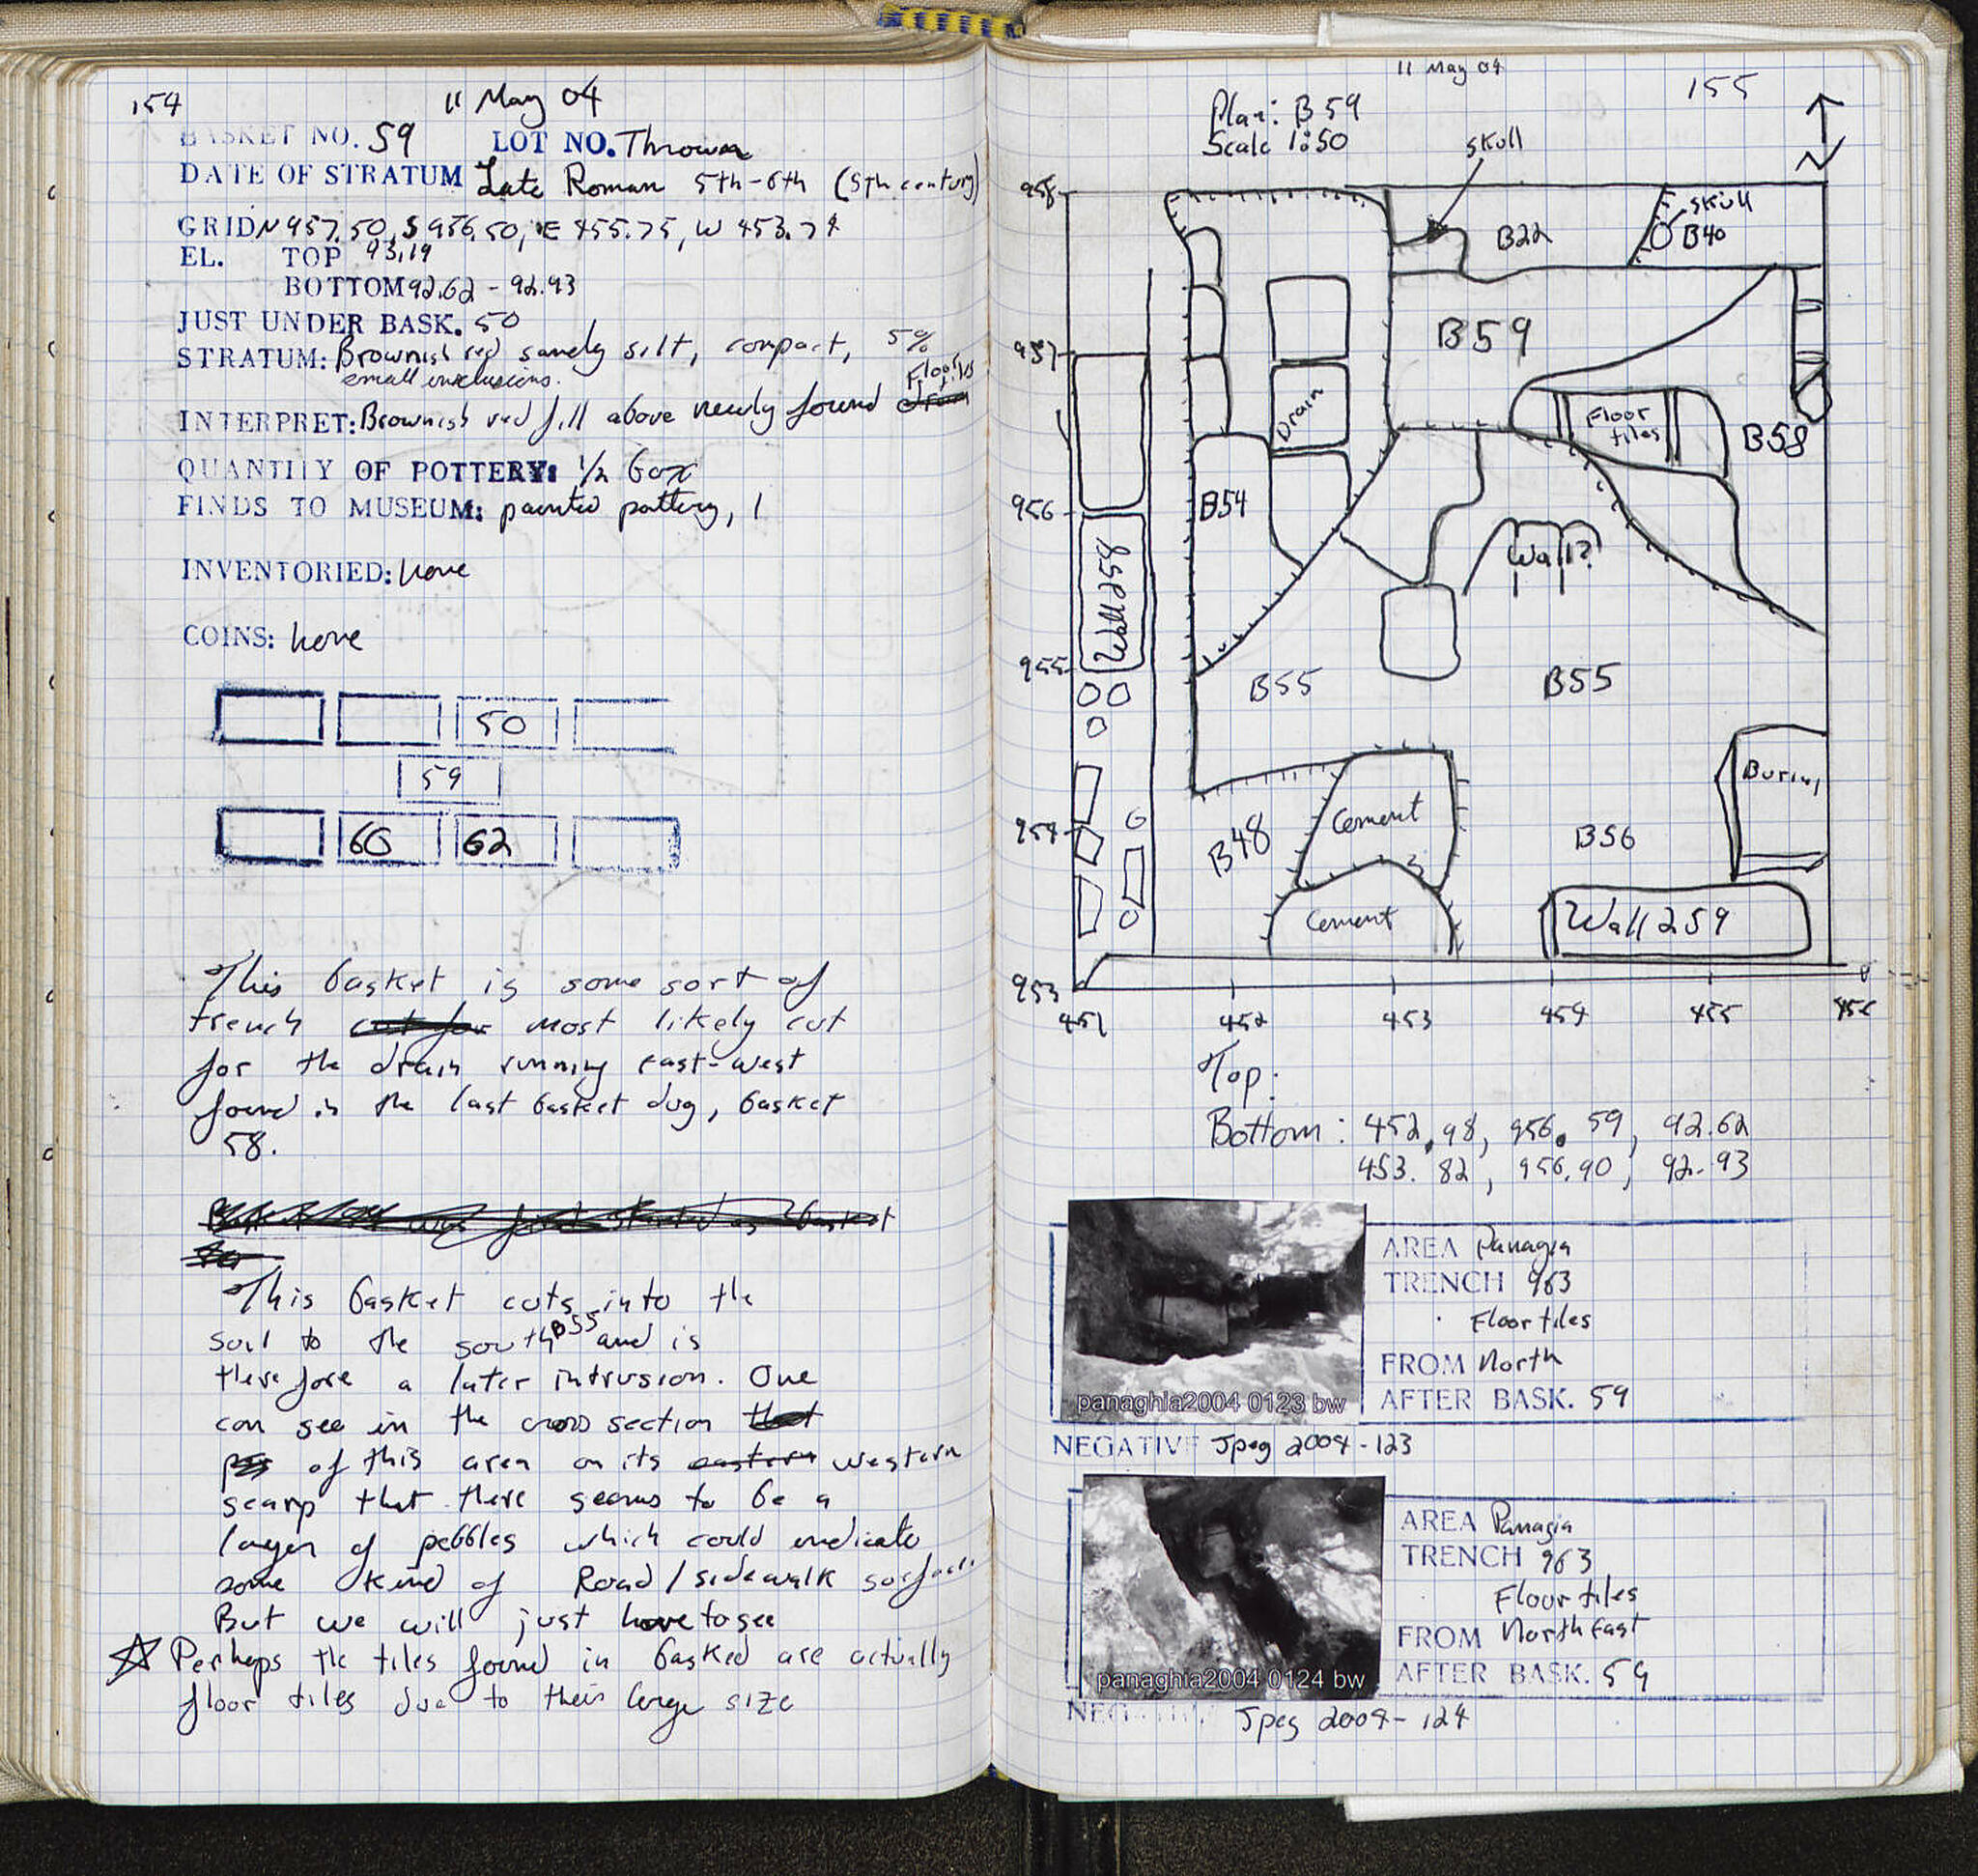 154
11 May 04
BASKET NO. 59 LOT NO. Thrown
DATE OF STRATUM Late Roman 5th-6th (5th century)
GRID N 957.50, S 956.50, E 455.75, W 453.74
EL. TOP 93.19
BOTTOM 92.62 - 92.93
JUST UNDER BASK. 50
STRATUM: Brownish red sandy silt, compact, 5%
small inclusions.
INTERPRET: Brownish red fill above newly found drain Floor tiles
QUANTITY OF POTTERY: 1/2 box
FINDS TO MUSEUM: painted pottery, 1
INVENTORIED: none
COINS: none
50
59
60 62
This basket is some sort of
trench cut for most likely cut
for the drain running east-west
found in the last basket dug, basket
58.
was found started as basket
This basket cuts into the
soil to the south B55 and is
therefore a later intrusion. One
can see in the cross section that
of this area on its eastern western
scarp that there seems to be a
layer of pebbles which could indicate
some kind of Road/sidewalk surface.
But we will just have to see
☆ Perhaps the tiles found in basked are actually
floor tiles due to their large size
11 May 04
155
Plan: B59
Scale 1:50
N
skull
958
skull
B22
B40
B59
957
Drain
Floor
tiles
B58
956
B54
Wall?
Wall 258
955
B55
B55
Burial
954
B48
Cement
B56
Cement
Wall 259
953
451 452 453 454 455 456
Top:
Bottom: 452.98, 956.59, 92.62
453.82, 956.90, 92.93
AREA Panagia
TRENCH 963
Floor tiles
FROM North
AFTER BASK. 59
panaghia2004 0123 bw
NEGATIVE Jpeg 2004-123
AREA Panagia
TRENCH 963
Floor tiles
FROM North East
AFTER BASK. 59
panaghia2004 0124 bw
NEGATIVE Jpeg 2004-124